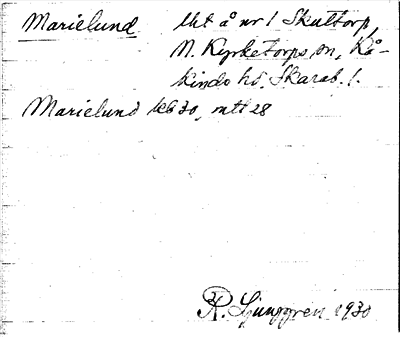 Marielund lht å nr 1 Skattorp,
N. Kyrketorps sn, Kå-
kinds hd, Skarab. l.
Marielund kb 30, mtl 28
R. Ljunggren 1930